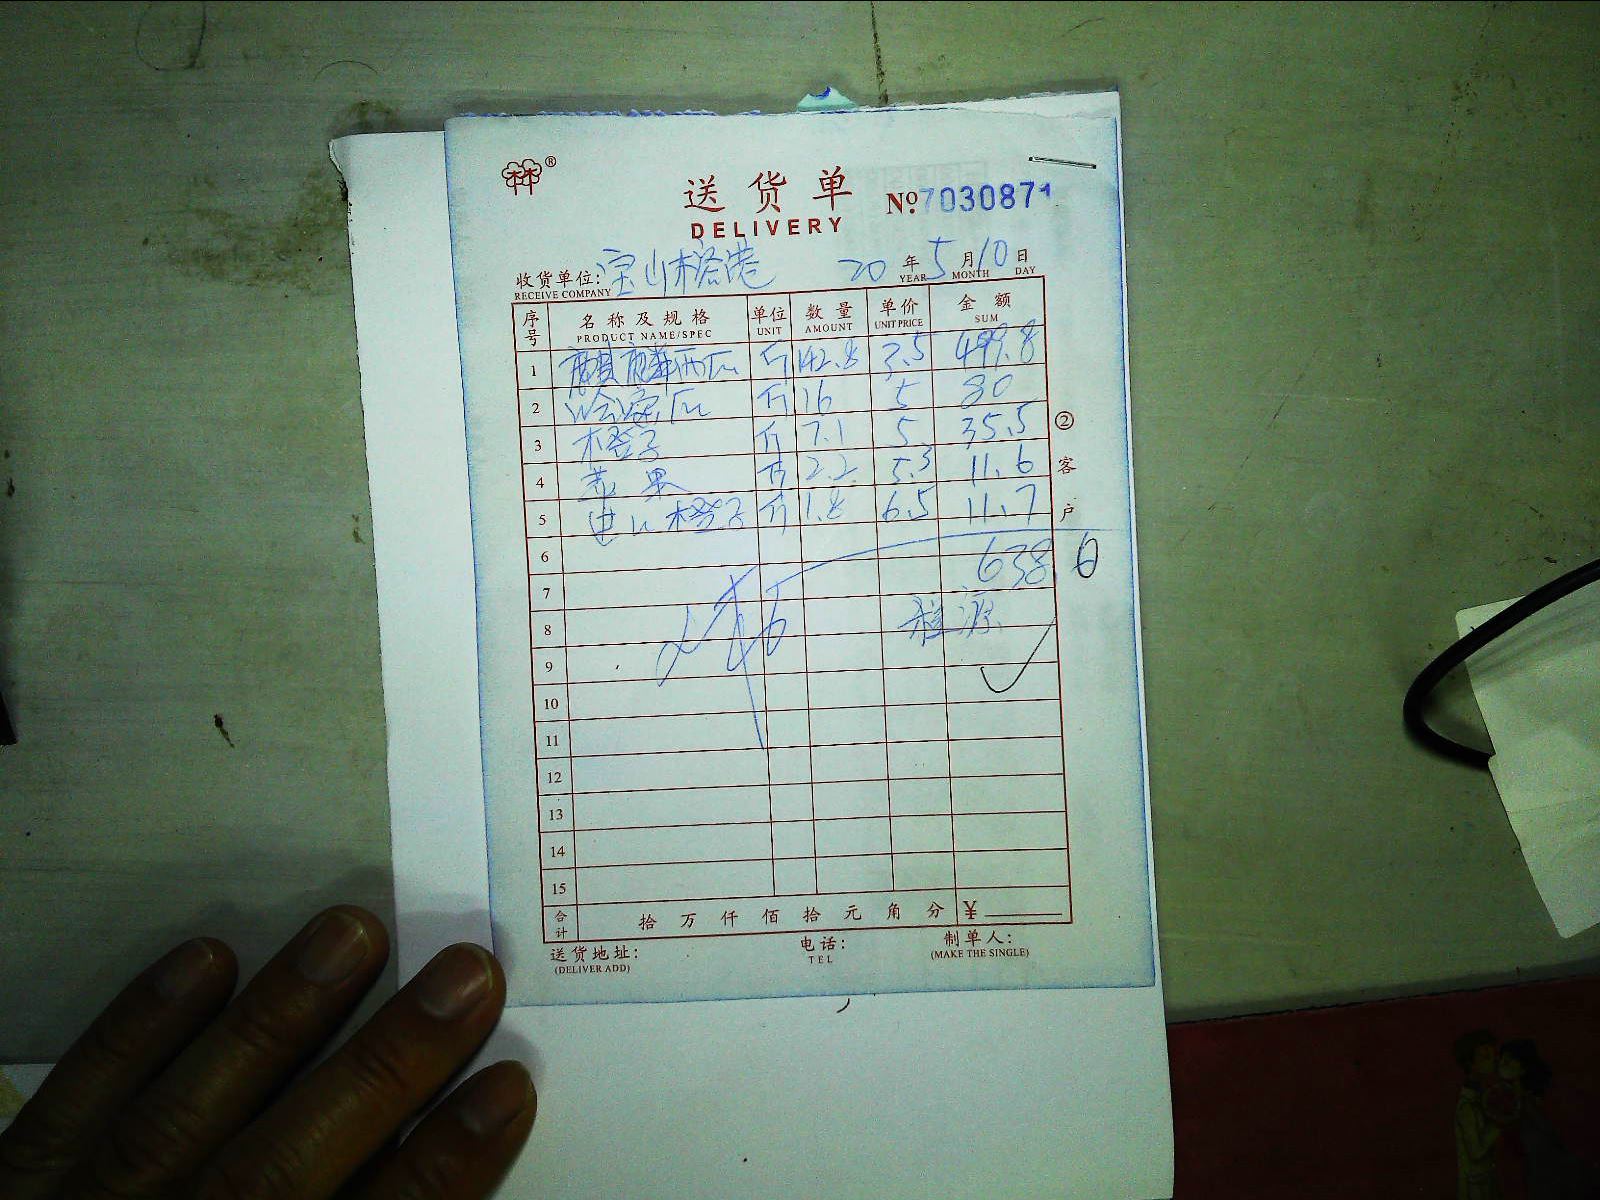 林®
送货单
DELIVERY
No. 7030871
收货单位: 宝山榕港 20 年 5 月 10 日
RECEIVE COMPANY YEAR MONTH DAY
序号 名称及规格 单位 数量 单价 金额
PRODUCT NAME/SPEC UNIT AMOUNT UNIT PRICE SUM
1 麒麟西瓜 斤 142.8 3.5 499.8
2 哈密瓜 斤 16 5 80
3 橙子 斤 7.1 5 35.5
4 苹果 斤 2.2 5.3 11.6
5 进口橙子 斤 1.8 6.5 11.7
② 客户
6
638.6
7
8
9
10
11
12
13
14
15
合计 拾 万 仟 佰 拾 元 角 分 ¥
送货地址: 电话: 制单人:
(DELIVER ADD) TEL (MAKE THE SINGLE)